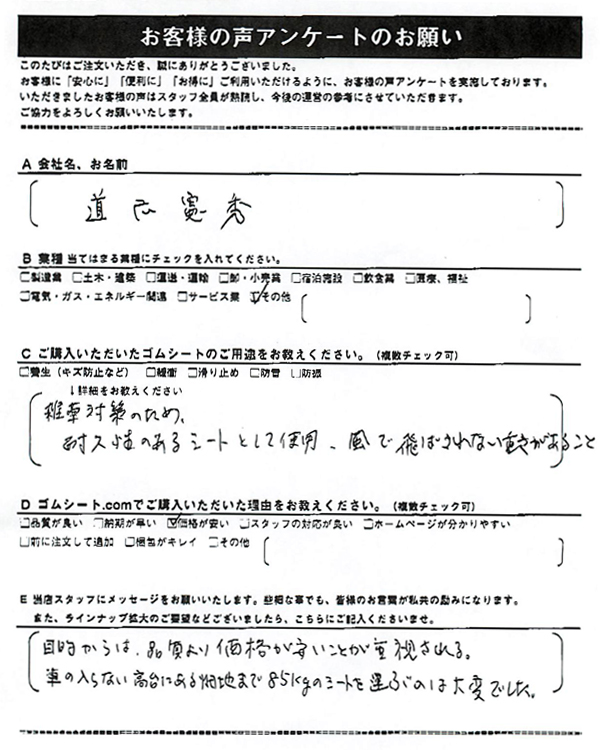 お客様の声アンケートのお願い
このたびはご注文いただき、誠にありがとうございました。
お客様に「安心に」「便利に」「お得に」ご利用いただけるように、お客様の声アンケートを実施しております。
いただきましたお客様の声はスタッフ全員が熟読し、今後の運営の参考にさせていただきます。
ご協力をよろしくお願いいたします。
A 会社名、お名前
道 憲秀
B 業種 当てはまる業種にチェックを入れてください。
□製造業 □土木・建築 □運送・運輸 □卸・小売業 □宿泊施設 □飲食業 □医療、福祉
□電気・ガス・エネルギー関連 □サービス業 ☑その他
C ご購入いただいたゴムシートのご用途をお教えください。(複数チェック可)
□養生(キズ防止など) □緩衝 □滑り止め □防音 □防振
↓詳細をお教えください
雑草対策のため、
耐久性のあるシートとして使用、風で飛ばされない重さがあること
D ゴムシート.comでご購入いただいた理由をお教えください。(複数チェック可)
□品質が良い □納期が早い ☑価格が安い □スタッフの対応が良い □ホームページが分かりやすい
□前に注文して追加 □梱包がキレイ □その他
E 当店スタッフにメッセージをお願いいたします。些細な事でも、皆様のお言葉が私共の励みになります。
また、ラインナップ拡大のご要望などございましたら、こちらにご記入くださいませ。
目的からは、品質より価格が安いことが重視される。
車の入らない高台にある畑地まで85kgのシートを運ぶのは大変でした。